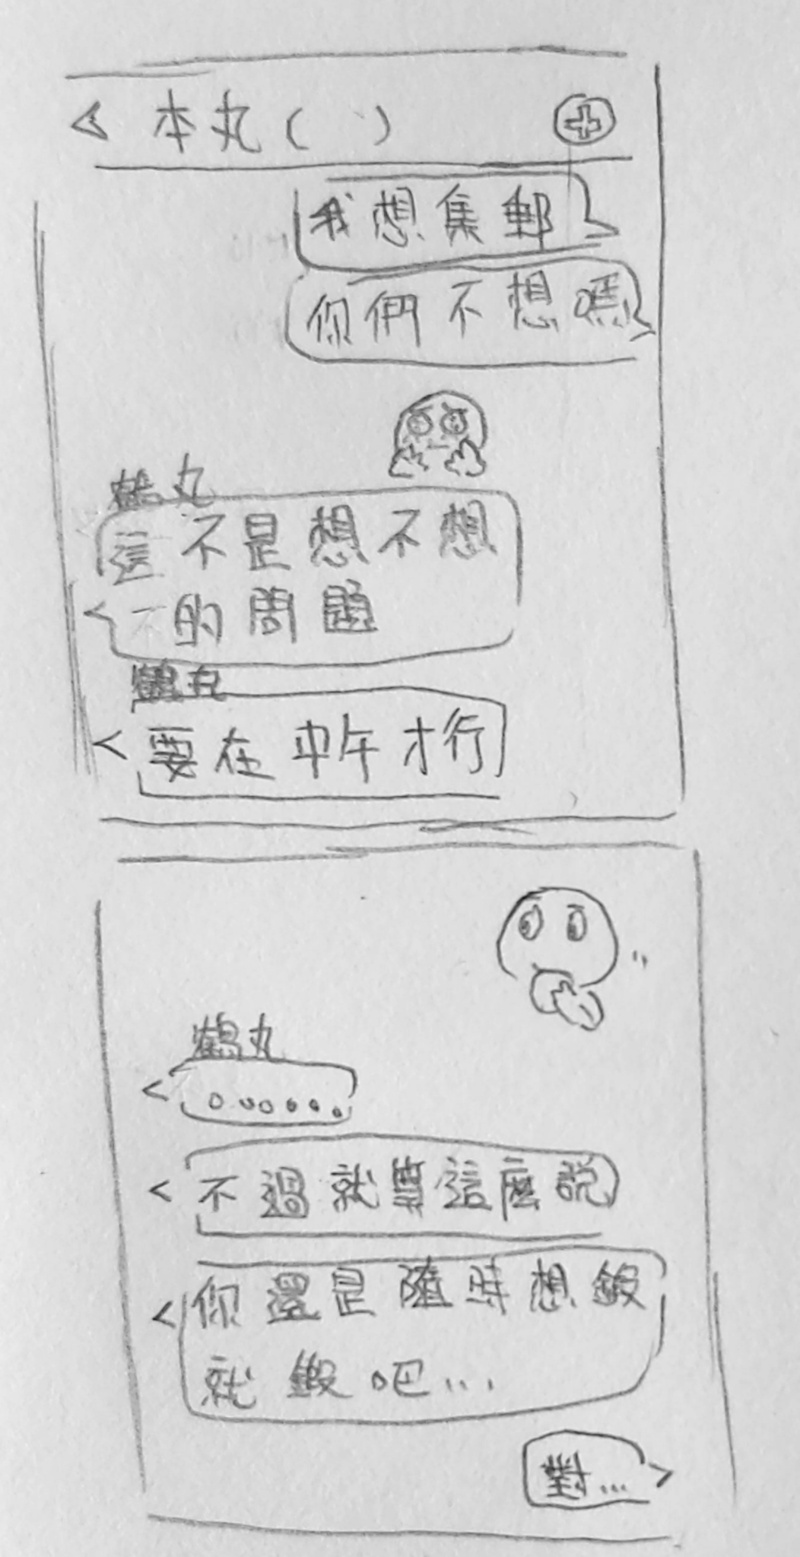 < 本丸( )
我想集郵
你們不想嗎
鶴丸
這不是想不想
的問題
鶴丸
要在中午才行
鶴丸
。。。。。。
不過就算這麼說
你還是隨時想鍛
就鍛吧...
對...